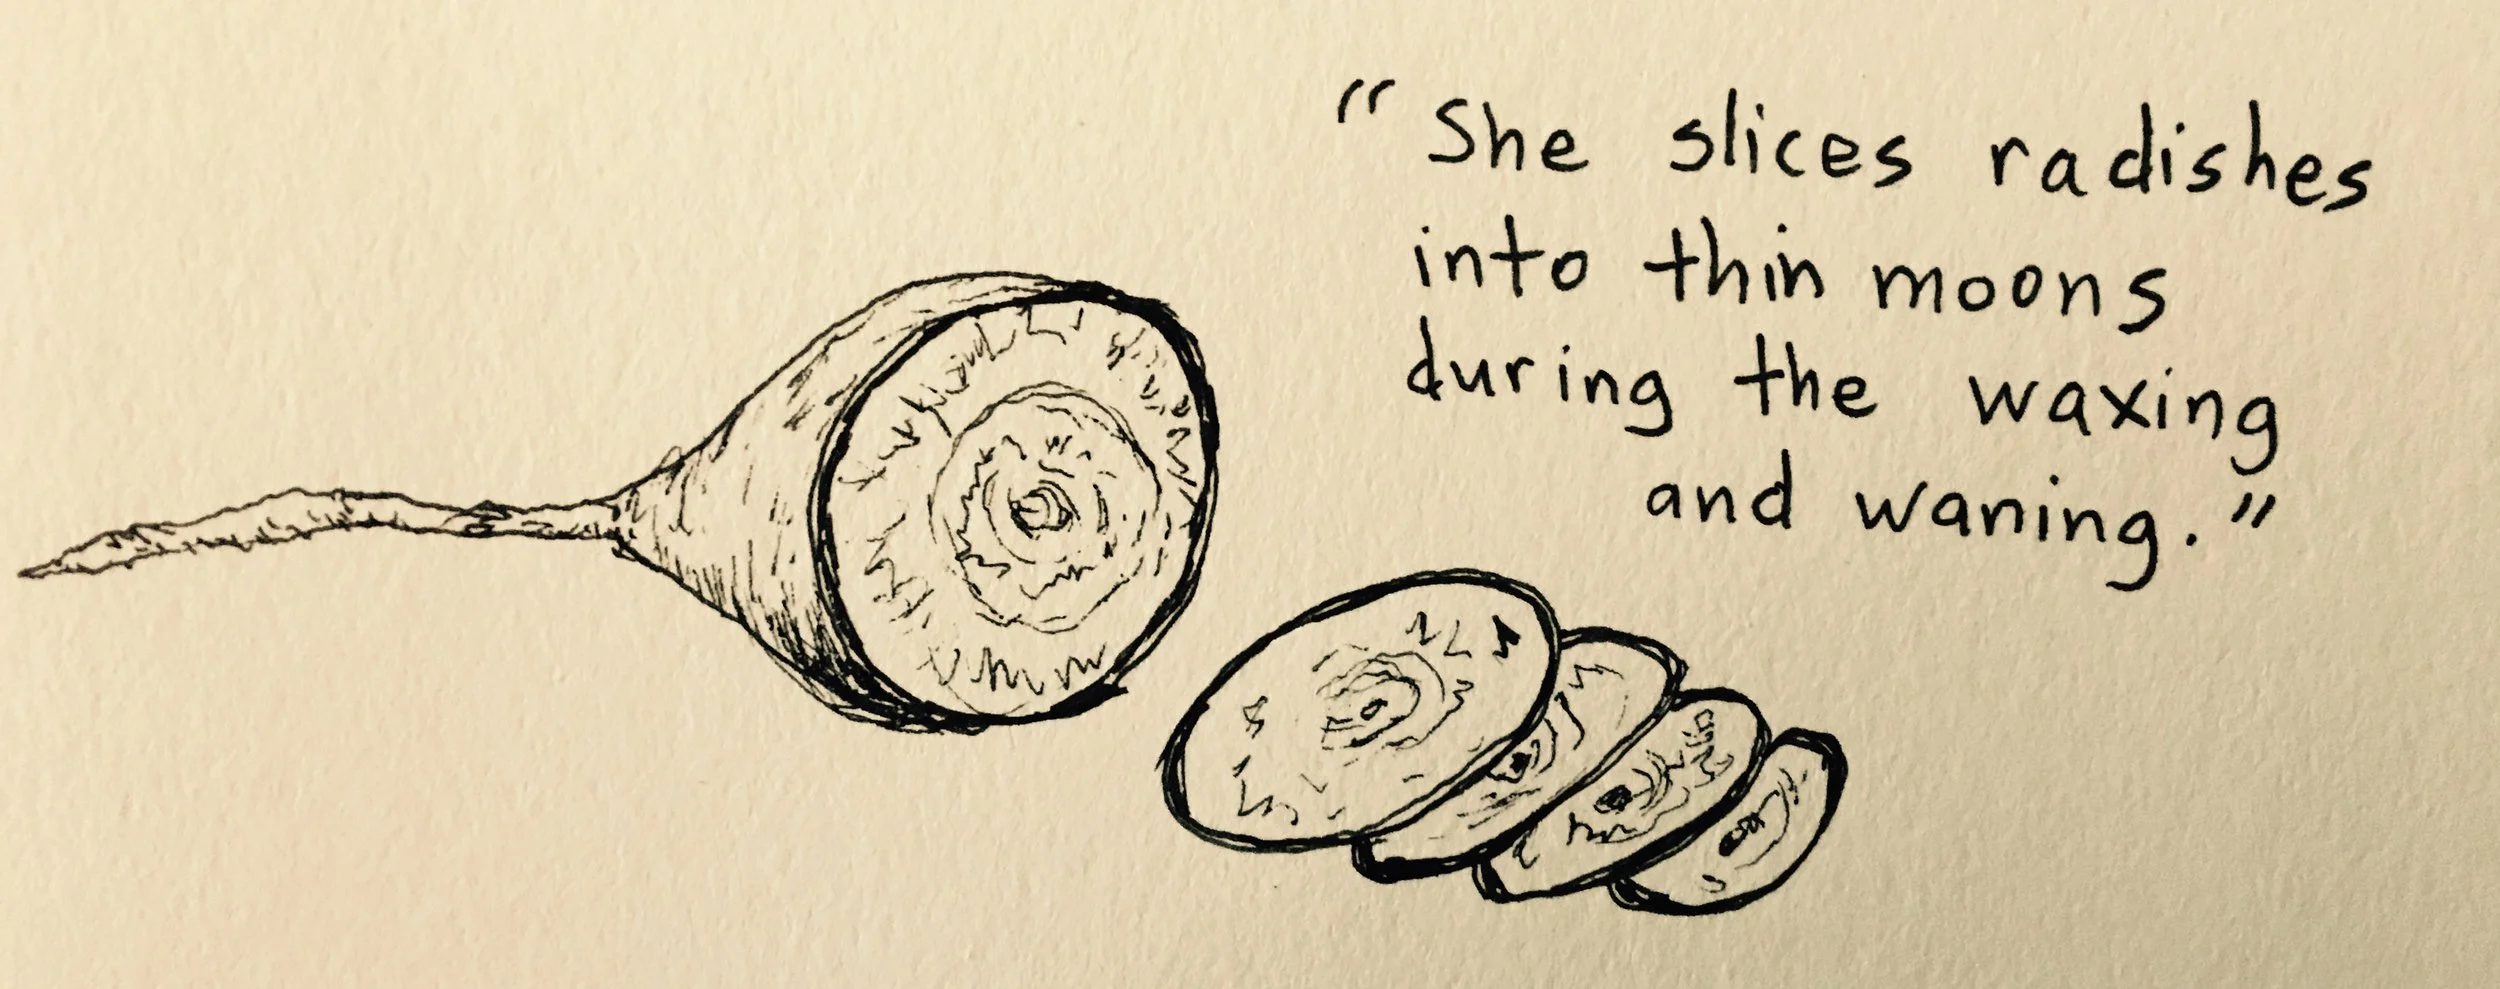 “She slices radishes
into thin moons
during the waxing
and waning.”